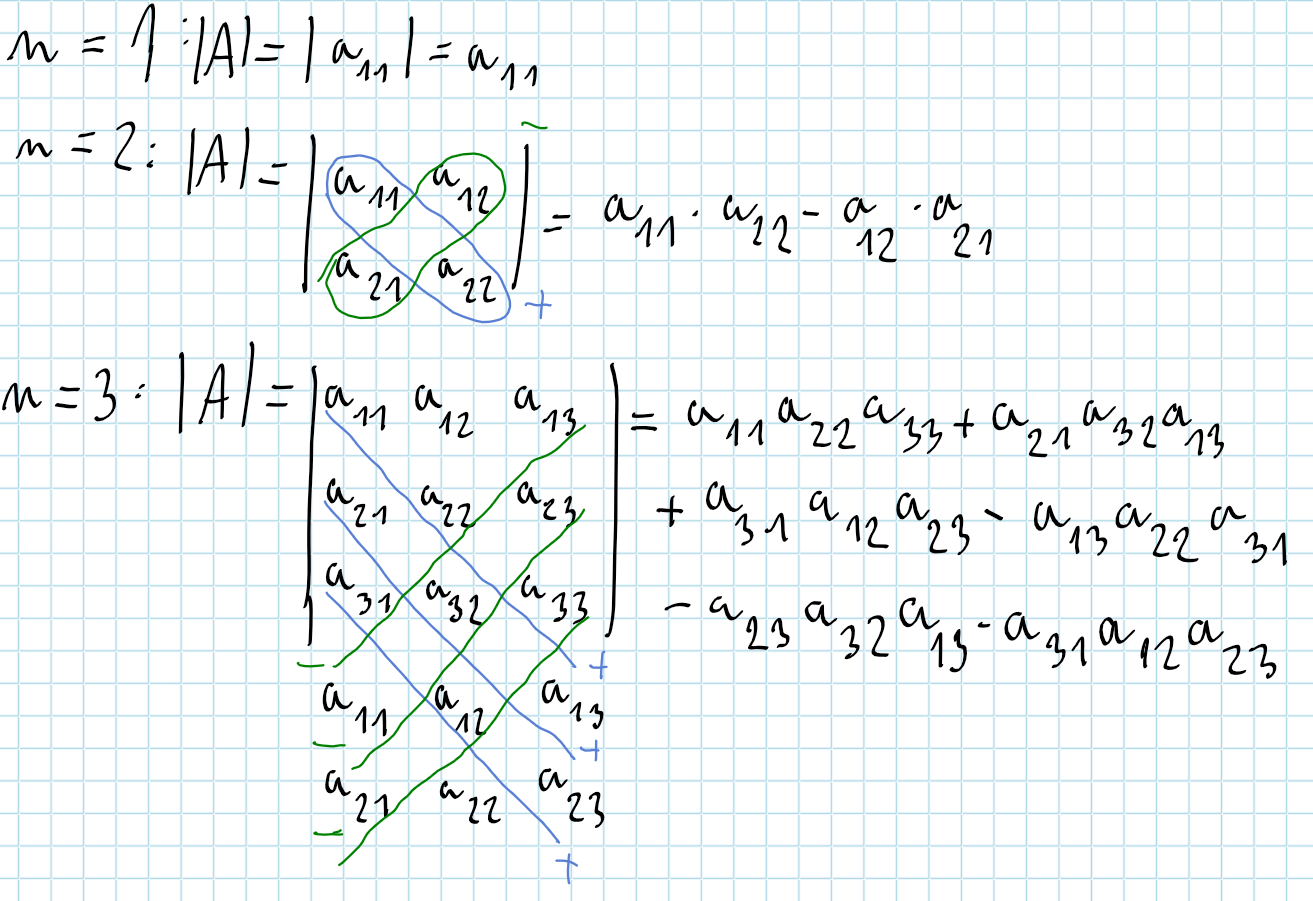 n = 1: |A| = | a₁₁ | = a₁₁
−
n = 2: |A| = | a₁₁ a₁₂ | = a₁₁ · a₂₂ − a₁₂ · a₂₁
a₂₁ a₂₂
+
n = 3: |A| = | a₁₁ a₁₂ a₁₃ | = a₁₁ a₂₂ a₃₃ + a₂₁ a₃₂ a₁₃
a₂₁ a₂₂ a₂₃ + a₃₁ a₁₂ a₂₃ − a₁₃ a₂₂ a₃₁
a₃₁ a₃₂ a₃₃ − a₂₃ a₃₂ a₁₃ − a₃₁ a₁₂ a₂₃
− +
a₁₁ a₁₂ a₁₃
− +
a₂₁ a₂₂ a₂₃
− +